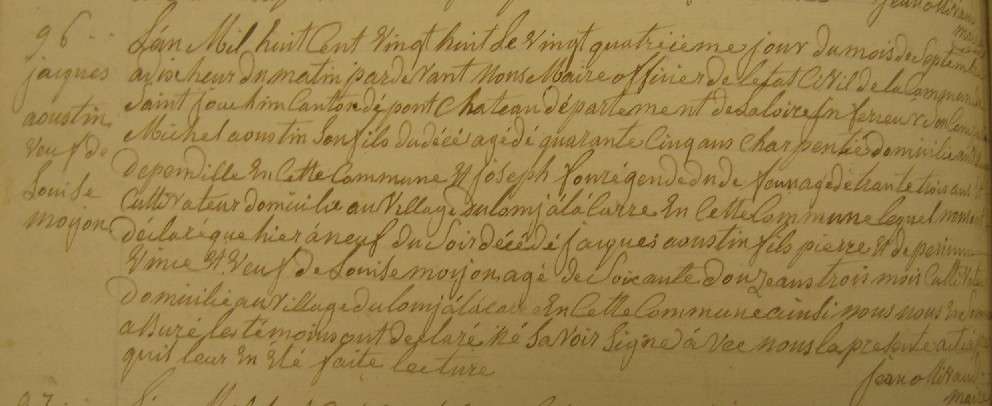 Jean ollivaud
maire
96
jacques
aoustin
veuf de
Louise
moyon
L'an Mil huit Cent Vingt huit Le vingt quatrieme jour du mois de septembre
a dix heur du matin par devant Nous Maire officier de letat Civil de la Commune de
Saint joachim Canton de pont Chateau département de la loire Inferieur
Michel aoustin Son fils du décé agé dé quarante Cinq ans Charpentier domicilié au
de pendille En Cette Commune Et joseph fouré gendre du de fun agé de trante trois ans
Cultivateur domicilié au Village du lomj álá Carre En Cette Commune lequel nous ont
déclaré que hier á neuf du Soir décédé jacques aoustin fils pierre Et de perinne
Vince Et veuf de Louise moyon agé de Soixante douze ans trois mois Cultivateur
domicilié au village du lomj álá carre En Cette Commune ainsi nous nous En somme
assuré les témoins ont declaré né Savoir Signé á vec nous la presente acte
quil leur En été faite lecture
Jean ollivaud
maire
97